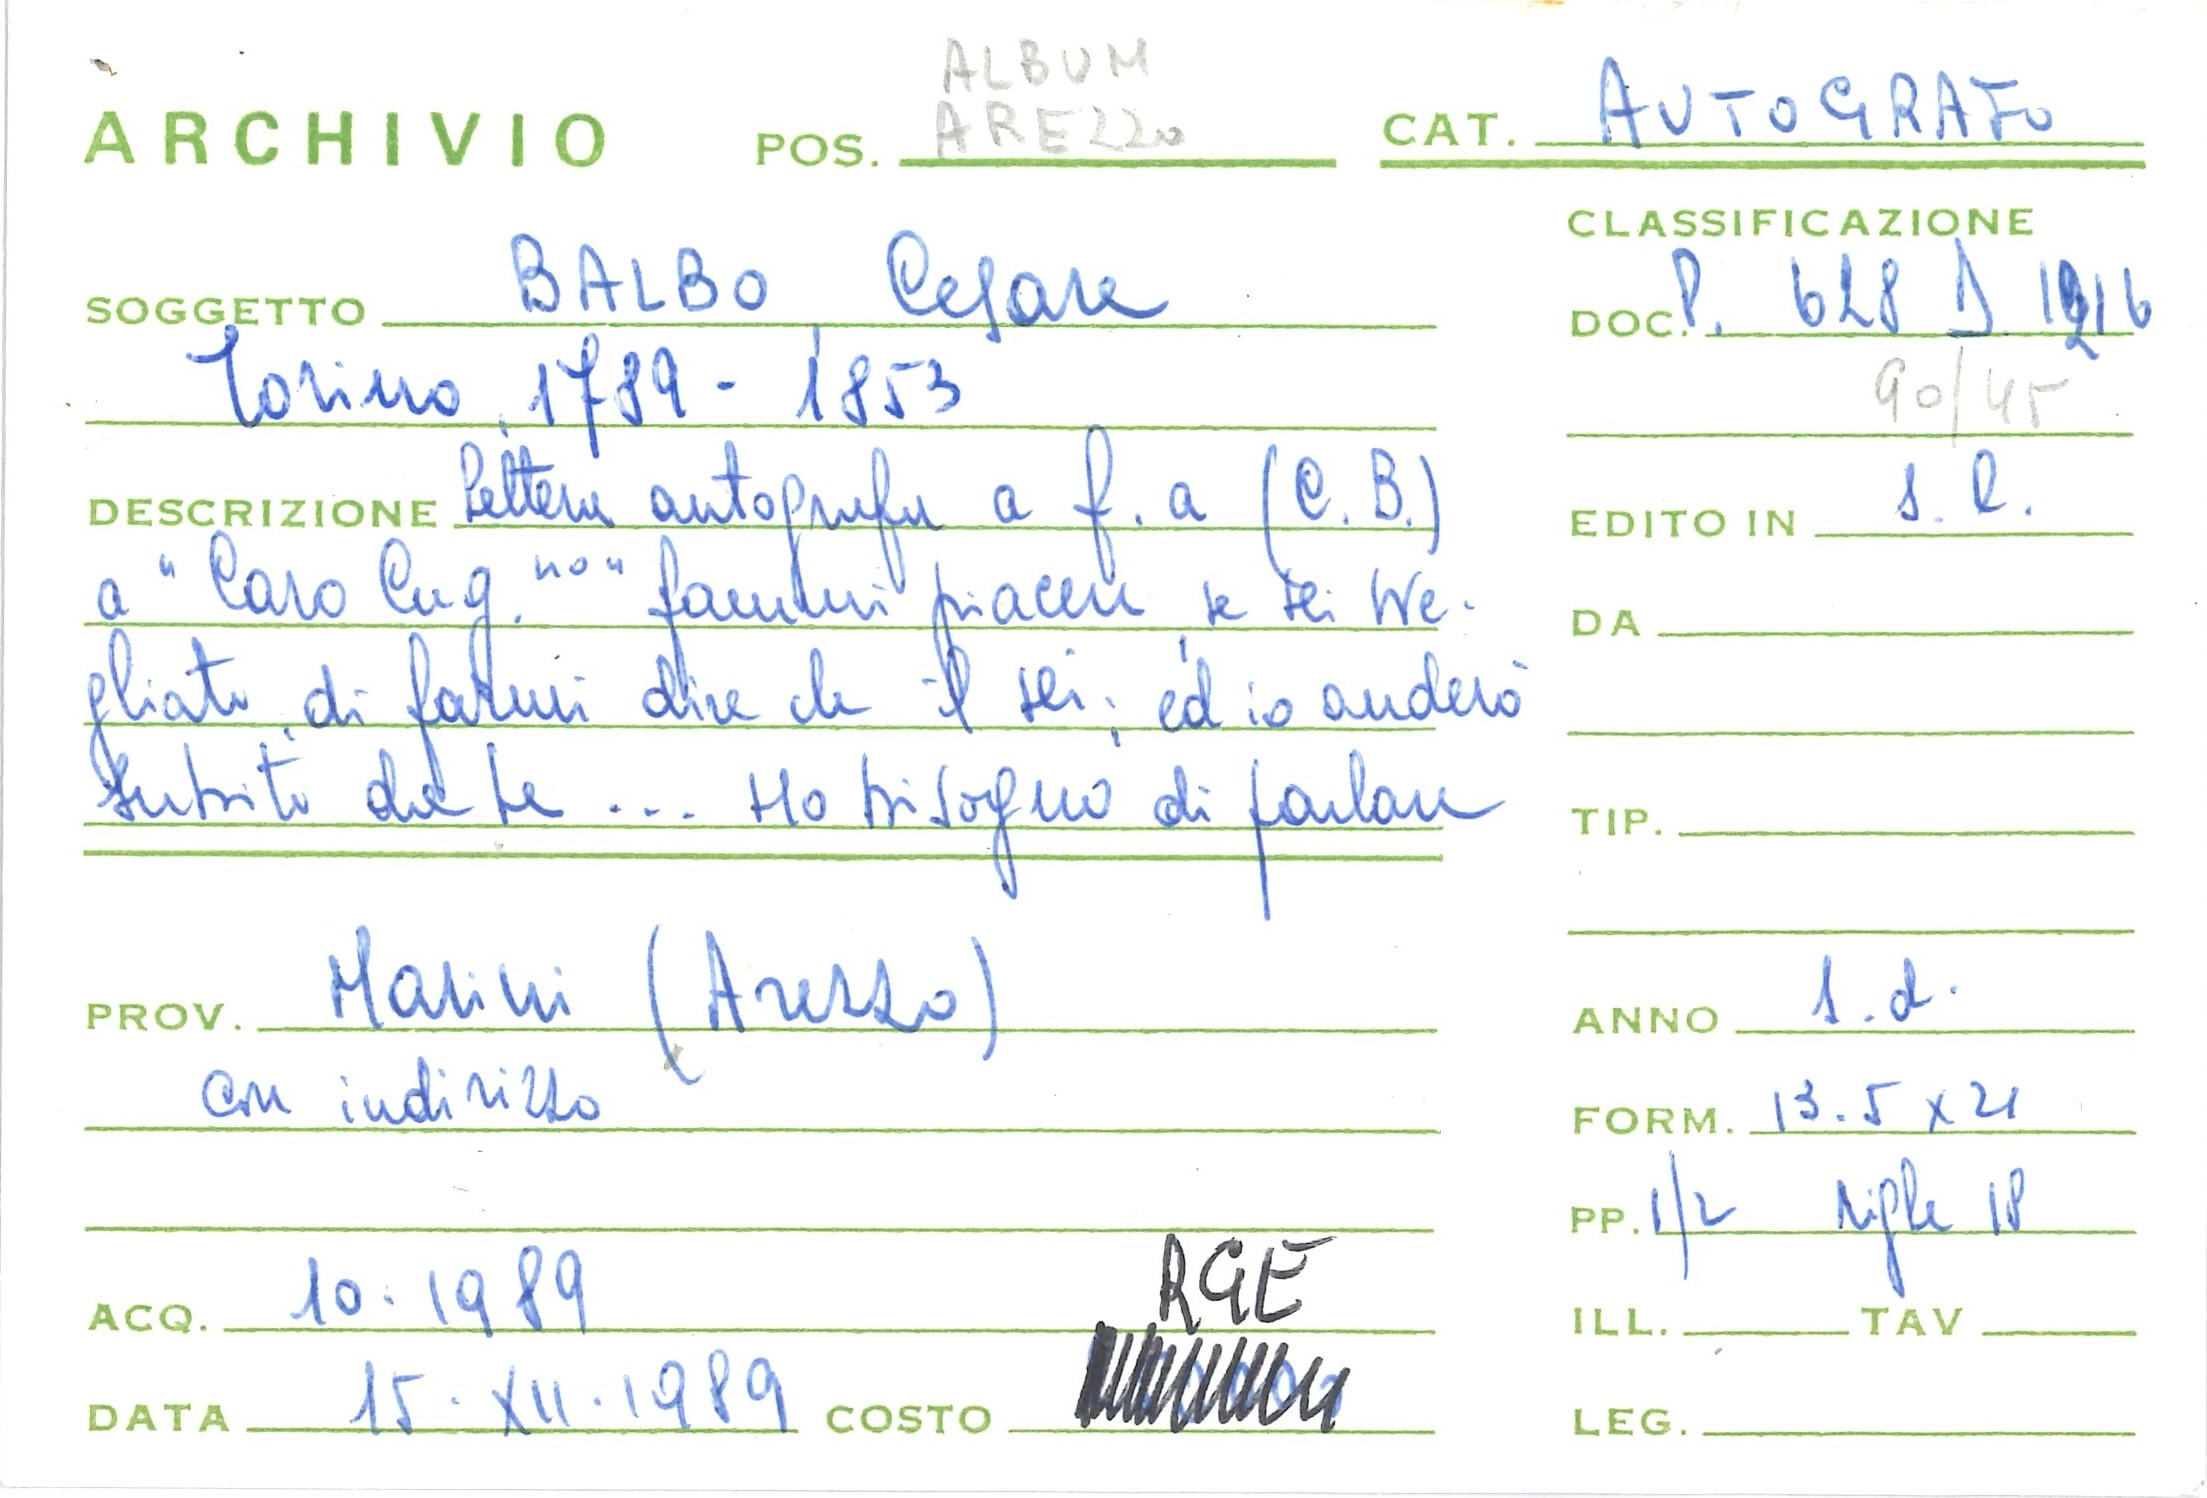 ALBUM
ARCHIVIO POS. AREZZO CAT. AUTOGRAFO
CLASSIFICAZIONE
SOGGETTO BALBO Cesare
DOC. P. 628 D. 1216
Torino 1789 - 1853
90/45
DESCRIZIONE Lettera autografa a f. a (C. B.)
EDITO IN s. l.
a "Caro Cug.no" fammi piacere se sei sve-
DA
gliato, di farmi dire che il sei; ed io anderò
subito da te ... Ho bisogno di parlare
TIP.
PROV. Marini (Arezzo)
ANNO s.d.
con indirizzo
FORM. 13.5 x 21
PP. 1/2 righe 18
ACQ. 10.1989 RGE
ILL. TAV
DATA 15.XII.1989 COSTO
LEG.